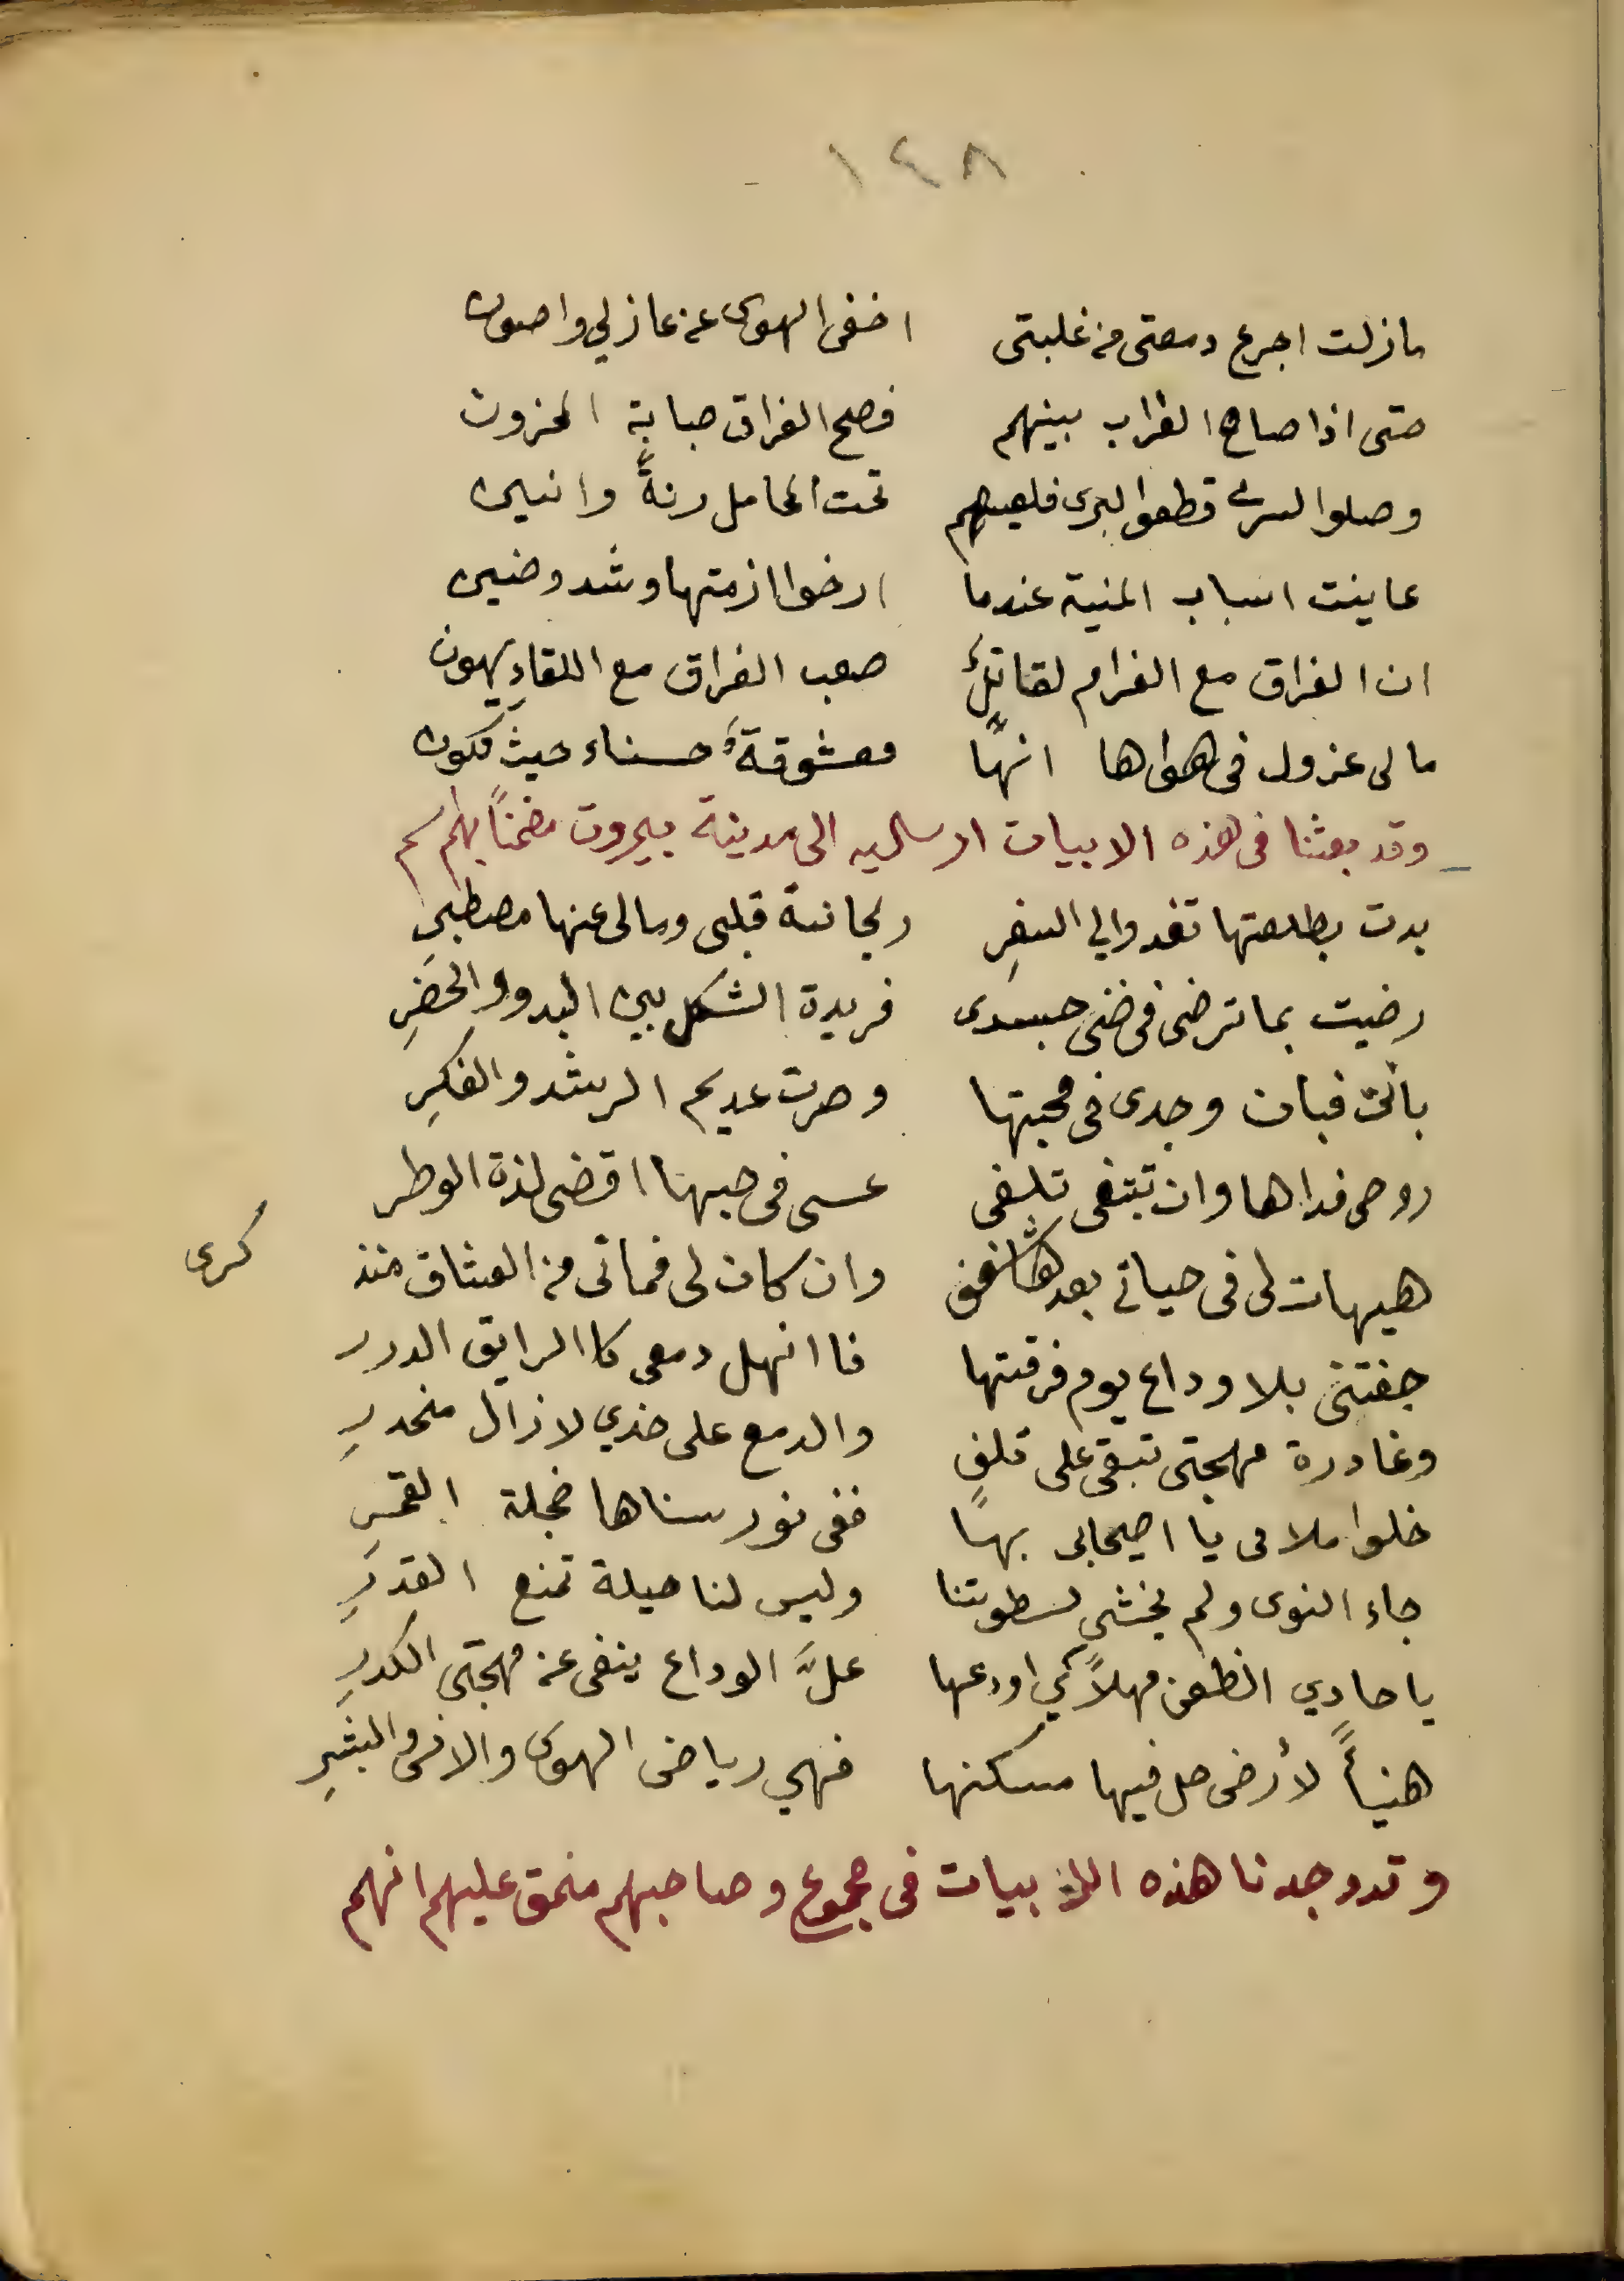 ١٤٨
مازلت اجرع دمعتى من غلبتى اخفى الهوى عن عازلي واصون
حتى اذا صاح الغراب ببينهم فضح الفراق صبابة المحزون
وصلوا السرى قطعوا البرى فلعيسهم تحت المحامل رنةً وانين
عاينت اسباب المنية عندما ارخوا ازمتها وشد وضين
ان الفراق مع الغرام لقاتلٌ صعب الفراق مع اللقاءِ يهون
مالى عزول فى هواها انهّا معشوقةٌ حسناء حيث تكون
وقد بعثنا فى هذه الابيات ارساليه الى مدينة بيروت مضمنًا بهم
بدت بطلعتها تغدوا لي السفرِ ريحانة قلبى ومالى عنها مصطبرِ
رضيت بما ترضى فى ضنى جسدى فريدة الشكل بين البدو والحَضرِ
بانت فبان وجدى فى محبتها وصرت عديم الرشد والفكرِ
روحى فداها وان تبتغى تلفى عسى فى حبها اقضى لذة الوطر
هيهات لى فى حياتي بعدها شغف وان كان لى فماتى من العشاق منذ كرى
جفتنى بلا وداع يوم فرقتها فا انهل دمعى كا الرايق الدرر
وغادرة مهجتى تبقى على تلفٍ والدمع على خدي لازال منحدرِ
خلوا ملامى يا اصيحابى بهًا ففى نور سناها خجلة القمرِ
جاء النوى ولم يخشى لسطوتنا وليس لنا حيلة تمنع القدَرِ
يا حادي الظعن مهلاً كي اودعها علَّ الوداع ينفى عن مهجتى الكدرِ
هنيأً لأرض حل فيها مسكنها فهي رياض الهوى والانس والبشرِ
وقد وجدنا هذه الابيات فى مجموع وصاحبهم منمق عليهم انهم